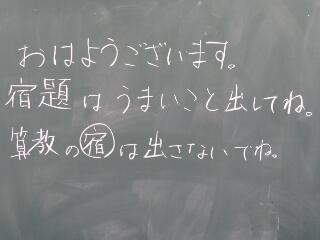 おはようございます。
宿題はうまいこと出してね。
算教の宿は出さないでね。